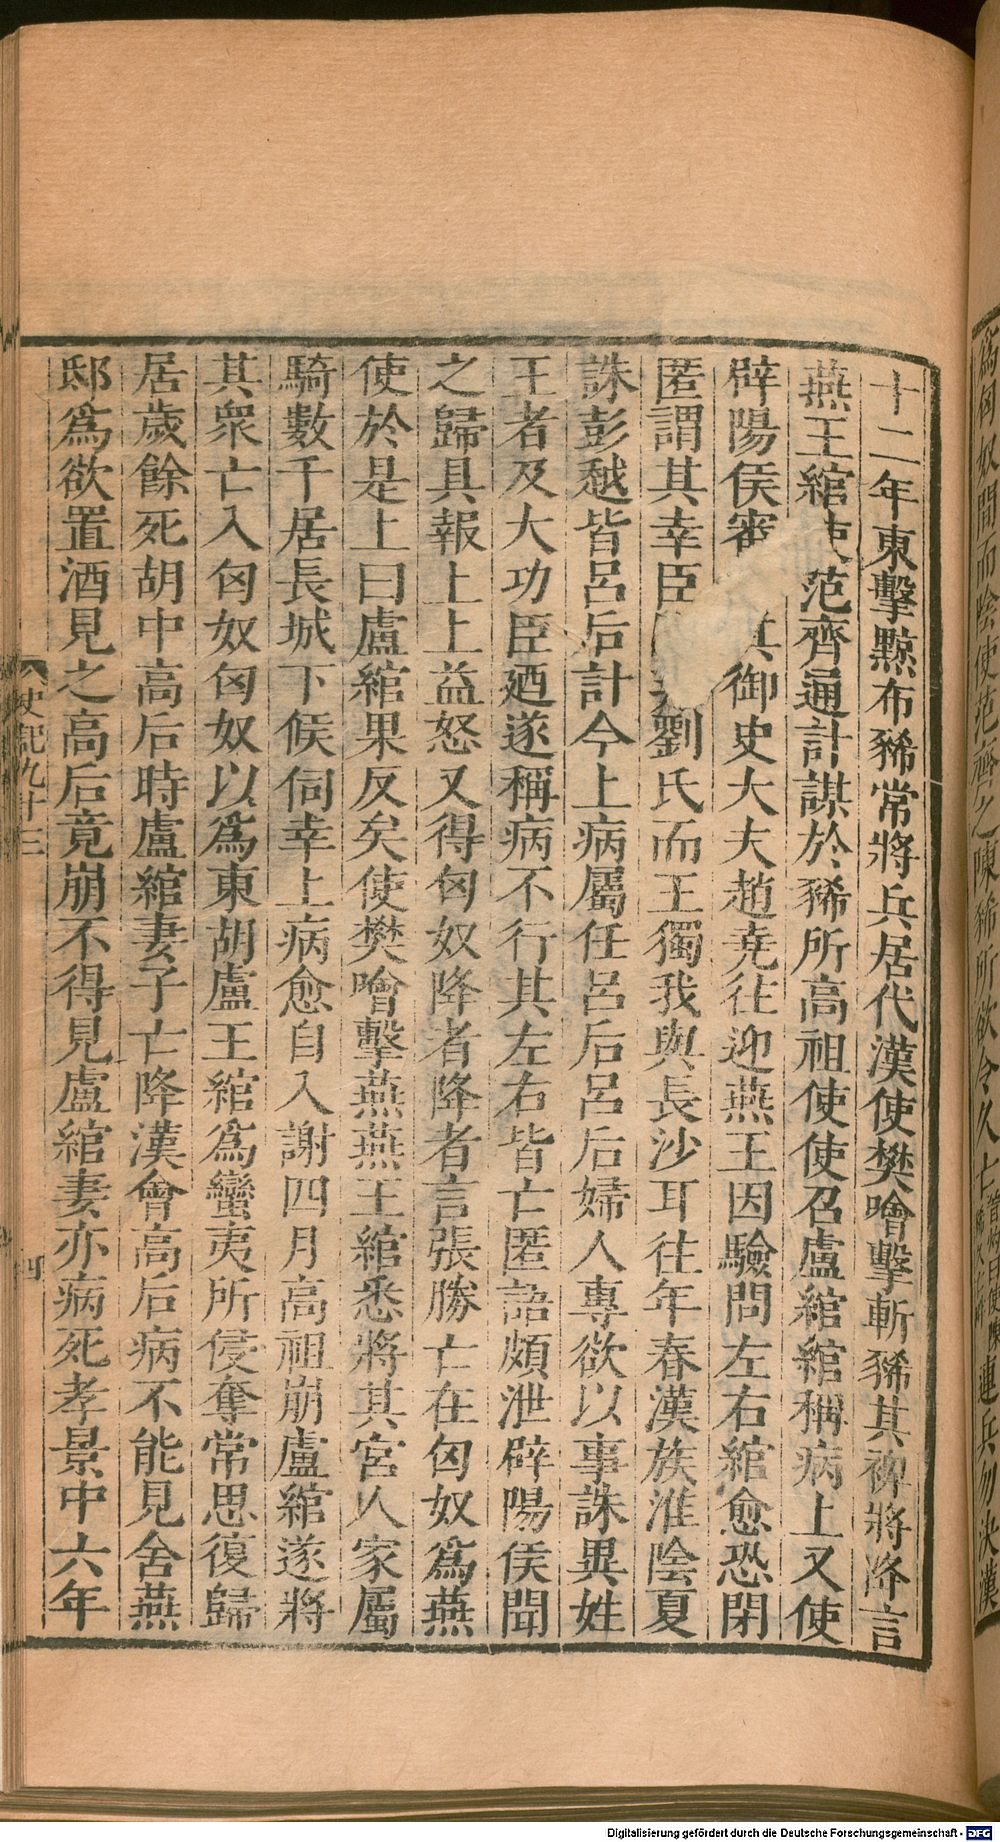 爲匈奴間而陰使范齊之陳豨所欲令久亡連兵勿決漢
十二年東擊黥布豨常將兵居代漢使樊噲擊斬豨其裨將降言
燕王綰使范齊通計謀於豨所高祖使使召盧綰綰稱病上又使
辟陽侯審其御史大夫趙尭往迎燕王因驗問左右綰愈恐閉
匿謂其幸臣劉氏而王獨我與長沙耳往年春漢族淮陰夏
誅彭越皆呂后計今上病屬任呂后呂后婦人專欲以事誅異姓
王者及大功臣廼遂稱病不行其左右皆亡匿語頗泄辟陽侯聞
之歸具報上上益怒又得匈奴降者降者言張勝亡在匈奴爲燕
使於是上曰盧綰果反矣使樊噲擊燕燕王綰悉將其宮人家屬
騎數千居長城下候伺幸上病愈自入謝四月高祖崩盧綰遂將
其衆亡入匈奴匈奴以爲東胡盧王綰爲蠻夷所侵奪常思復歸
居歲餘死胡中高后時盧綰妻子亡降漢會高后病不能見舍燕
邸爲欲置酒見之高后竟崩不得見盧綰妻亦病死孝景中六年
史記九十三
四
Digitalisierung gefördert durch die Deutsche Forschungsgemeinschaft - DFG